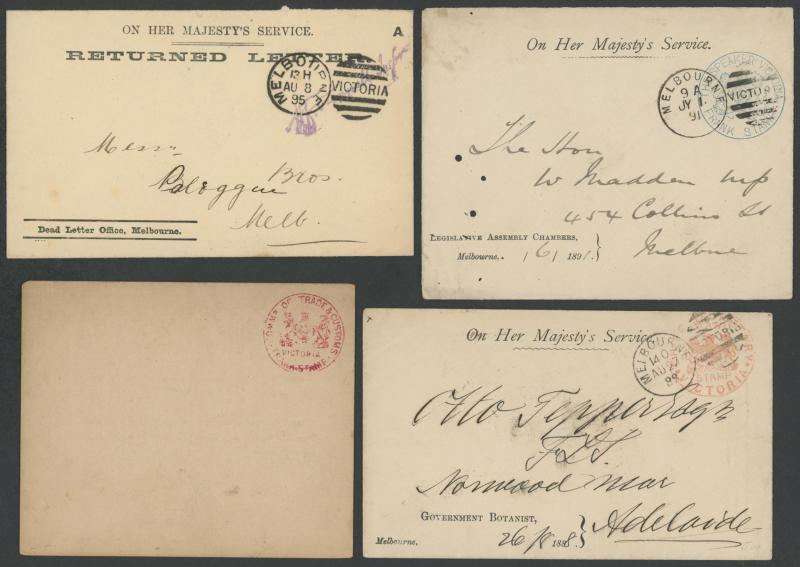 ON HER MAJESTY'S SERVICE.
A
RETURNED LETTER.
MELBOURNE
13 H
AU 8
95
VICTORIA
Messrs
Bros.
Melb.
Dead Letter Office, Melbourne.
On Her Majesty's Service.
MELBOURNE
9 A
JY 1
91
VICTORIA
THE SPEAKER VICTORIA
FRANK STAMP
The Hon
W Madden MP
454 Collins St
LEGISLATIVE ASSEMBLY CHAMBERS,
Melbourne. 1/6/ 1891.
Melbne
COMMR OF TRADE & CUSTOMS
VICTORIA
FRANK STAMP
On Her Majesty's Service.
MELBOURNE
14 O
AU 27
88
STAMP
VICTORIA
Otto Tepper Esqr
FLS
Norwood near
Adelaide
GOVERNMENT BOTANIST,
Melbourne. 26/8 1888.